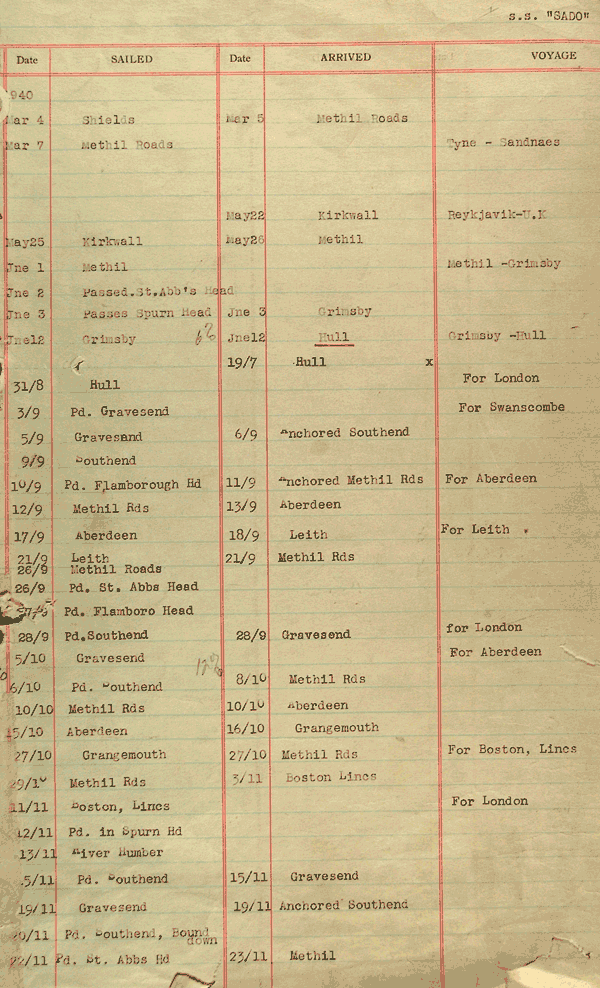 s.s. "SADO"
Date SAILED Date ARRIVED VOYAGE
940
Mar 4 Shields Mar 5 Methil Roads
Mar 7 Methil Roads Tyne - Sandnaes
May22 Kirkwall Reykjavik-U.K
May25 Kirkwall May26 Methil
Jne 1 Methil Methil -Grimsby
Jne 2 Passed.St.Abb's Head
Jne 3 Passes Spurn Head Jne 3 Grimsby
Jne12 Grimsby Jne12 Hull Grimsby -Hull
19/7 .Hull x
31/8 Hull For London
3/9 Pd. Gravesend For Swanscombe
5/9 Gravesand 6/9 Anchored Southend
9/9 Southend
10/9 Pd. Flamborough Hd 11/9 Anchored Methil Rds For Aberdeen
12/9 Methil Rds 13/9 Aberdeen
17/9 Aberdeen 18/9 Leith For Leith .
21/9 Leith 21/9 Methil Rds
26/9 Methil Roads
26/9 Pd. St. Abbs Head
Pd. Flamboro Head
28/9 Pd.Southend 28/9 Gravesend for London
5/10 Gravesend For Aberdeen
6/10 Pd. Southend 8/10 Methil Rds
10/10 Methil Rds 10/10 Aberdeen
15/10 Aberdeen 16/10 Grangemouth
27/10 Grangemouth 27/10 Methil Rds For Boston, Lincs
29/10 Methil Rds 3/11 Boston Lincs
11/11 Boston, Lincs For London
12/11 Pd. in Spurn Hd
13/11 River Humber
15/11 Pd. Southend 15/11 Gravesend
19/11 Gravesend 19/11 Anchored Southend
20/11 Pd. Southend, Bound
down
22/11 Pd. St. Abbs Hd 23/11 Methil